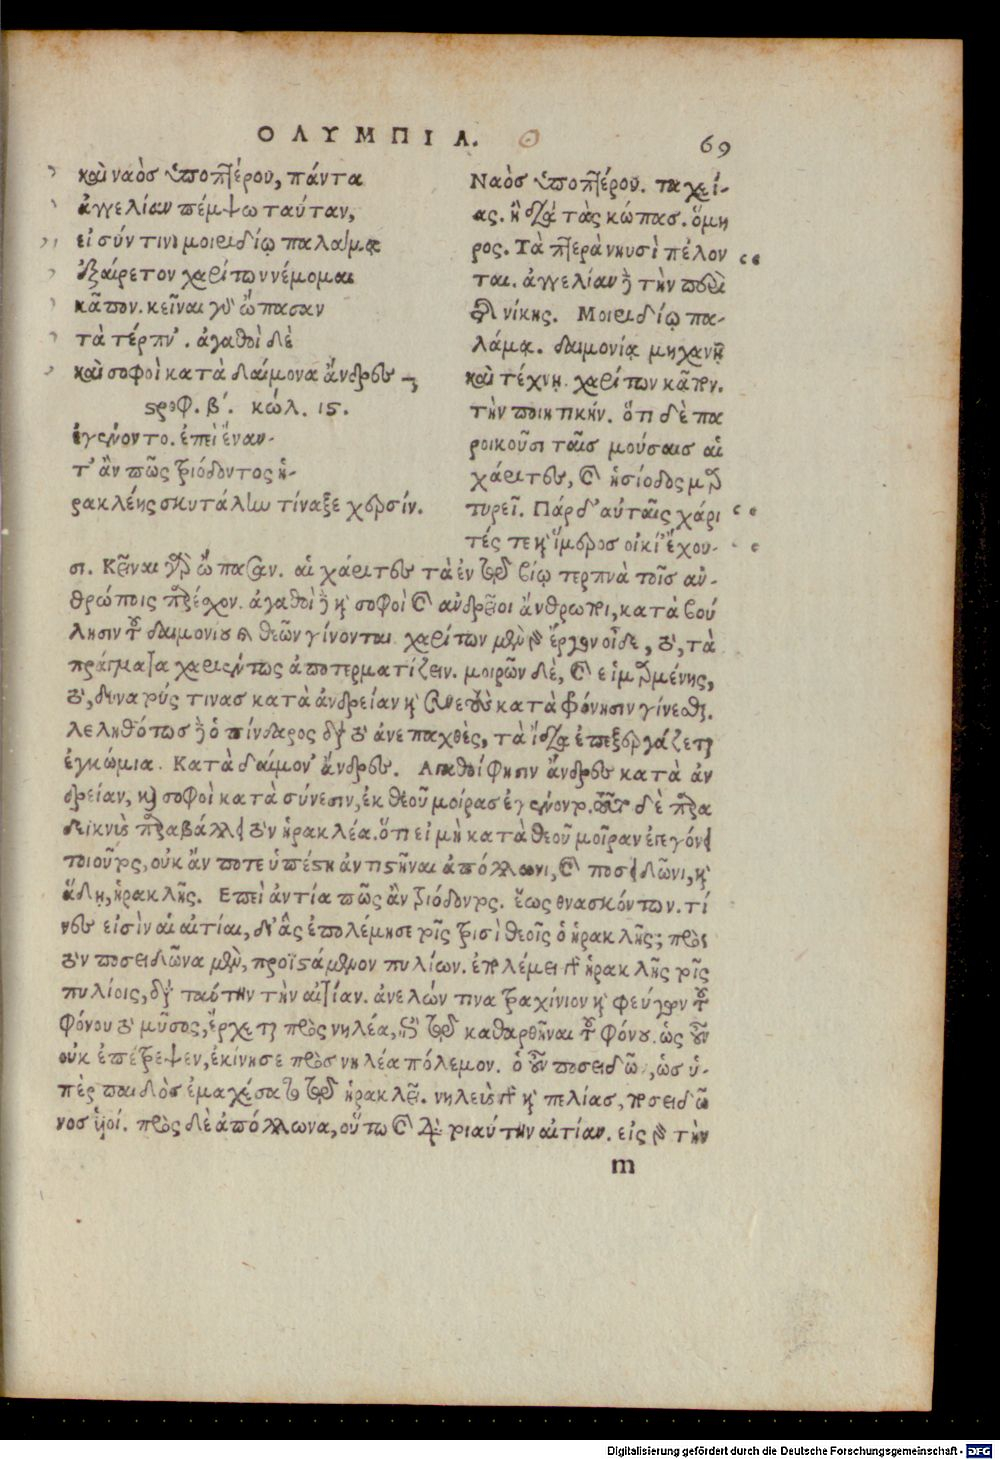 ΟΛΥΜΠΙΑ.
69
καὶ ναὸσ ὑποπτέρου, πάντα
ἀγγελίαν πέμψω ταύταν,
εἰ σύν τινι μοιριδίῳ παλάμᾳ
ἐξαίρετον χαρίτων νέμομαι
κᾶπον. κεῖναι γὸ ὤπασαν
τὰ τέρπν'. ἀγαθοὶ δὲ
καὶ σοφοὶ κατὰ δαίμονα ἄνδρες
στροφ. β'. κώλ. ις.
ἐγένοντο. ἐπεὶ ἐναν-
τ' ἂν πῶς τριόδοντος ἡ-
ρακλέης σκυτάλην τίναξε χερσίν.
Ναὸσ ὑποπτέρου. ταχεί-
ας. ἢ διὰ τὰς κώπασ. ὅμη
ρος. Τὰ πτερὰ νηυσὶ πέλον
ται. ἀγγελίαν δὲ τὴν περὶ
τῆς νίκης. Μοιριδίῳ πα-
λάμᾳ. δαιμονίᾳ μηχανῇ
καὶ τέχνῃ. χαρίτων κᾶπον.
τὴν ποιητικήν. ὅτι δὲ πα
ροικοῦσι ταῖσ μούσαισ αἱ
χάριτες, καὶ ἡσίοδος μαρ
τυρεῖ. Πὰρ δ' αὐταῖς χάρι
τές τε καὶ ἵμερος οἰκί' ἔχου-
σι. Κεῖναι γὰρ ὤπασαν. αἱ χάριτες τὰ ἐν τῷ βίῳ τερπνὰ τοῖσ ἀν-
θρώποις παρέσχον. ἀγαθοὶ δὲ καὶ σοφοὶ καὶ ἀνδρεῖοι ἄνθρωποι, κατὰ βού
λησιν τοῦ δαιμονίου τῶν θεῶν γίνονται. χαρίτων μὲν γὰρ ἔργον οἶδε, τὸ, τὰ
πράγματα χαριέντως ἀποτερματίζειν. μοιρῶν δὲ, καὶ εἱμαρμένης,
τὸ, δυνατούς τινασ κατὰ ἀνδρείαν καὶ συνετοὺς κατὰ φρόνησιν γίνεσθαι.
λεληθότωσ δὲ ὁ πίνδαρος διὰ τὸ ἀνεπαχθὲς, τὰ ἴδια ἐπεξεργάζεται
ἐγκώμια. Κατὰ δαίμον' ἄνδρες. Αγαθοί φησιν ἄνδρες κατὰ ἀν
δρείαν, καὶ σοφοὶ κατὰ σύνεσιν, ἐκ θεοῦ μοίρασ ἐγένοντο. τοῦτο δὲ παρα
δεικνὺς παραβάλλει τὸν ἡρακλέα. ὅτι εἰ μὴ κατὰ θεοῦ μοῖραν ἐγεγόνει
τοιοῦτος, οὐκ ἄν ποτε ὑπέστη ἀντιστῆναι ἀπόλλωνι, καὶ ποσειδῶνι, καὶ
ἅδῃ, ἡρακλῆς. Επεὶ ἀντία πῶς ἂν τριόδοντος. ἕως θνασκόντων. τί
νες εἰσὶν αἱ αἰτίαι, δι' ἃς ἐπολέμησε τοῖς τρισὶ θεοῖς ὁ ἡρακλῆς; πρὸς
τὸν ποσειδῶνα μὲν, προϊστάμενον πυλίων. ἐπολέμει γὰρ ἡρακλῆς τοῖς
πυλίοις, διὰ ταύτην τὴν αἰτίαν. ἀνελών τινα τραχίνιον καὶ φεύγων τοῦ
φόνου τὸ μῦσος, ἔρχεται πρὸς νηλέα, ἐπὶ τῷ καθαρθῆναι τοῦ φόνου. ὡς οὖν
οὐκ ἐπέτρεψεν, ἐκίνησε πρὸσ νηλέα πόλεμον. ὁ οὖν ποσειδῶν, ὡσ ὑ-
πὲρ παιδὸσ ἐμαχέσατο τῷ ἡρακλεῖ. νηλεὺς γὰρ καὶ πελίασ, ποσειδῶ
νοσ υἱοί. πρὸς δὲ ἀπόλλωνα, οὕτω καὶ διὰ τοιαύτην αἰτίαν. εἰς γὰρ τὴν
m
Digitalisierung gefördert durch die Deutsche Forschungsgemeinschaft - DFG